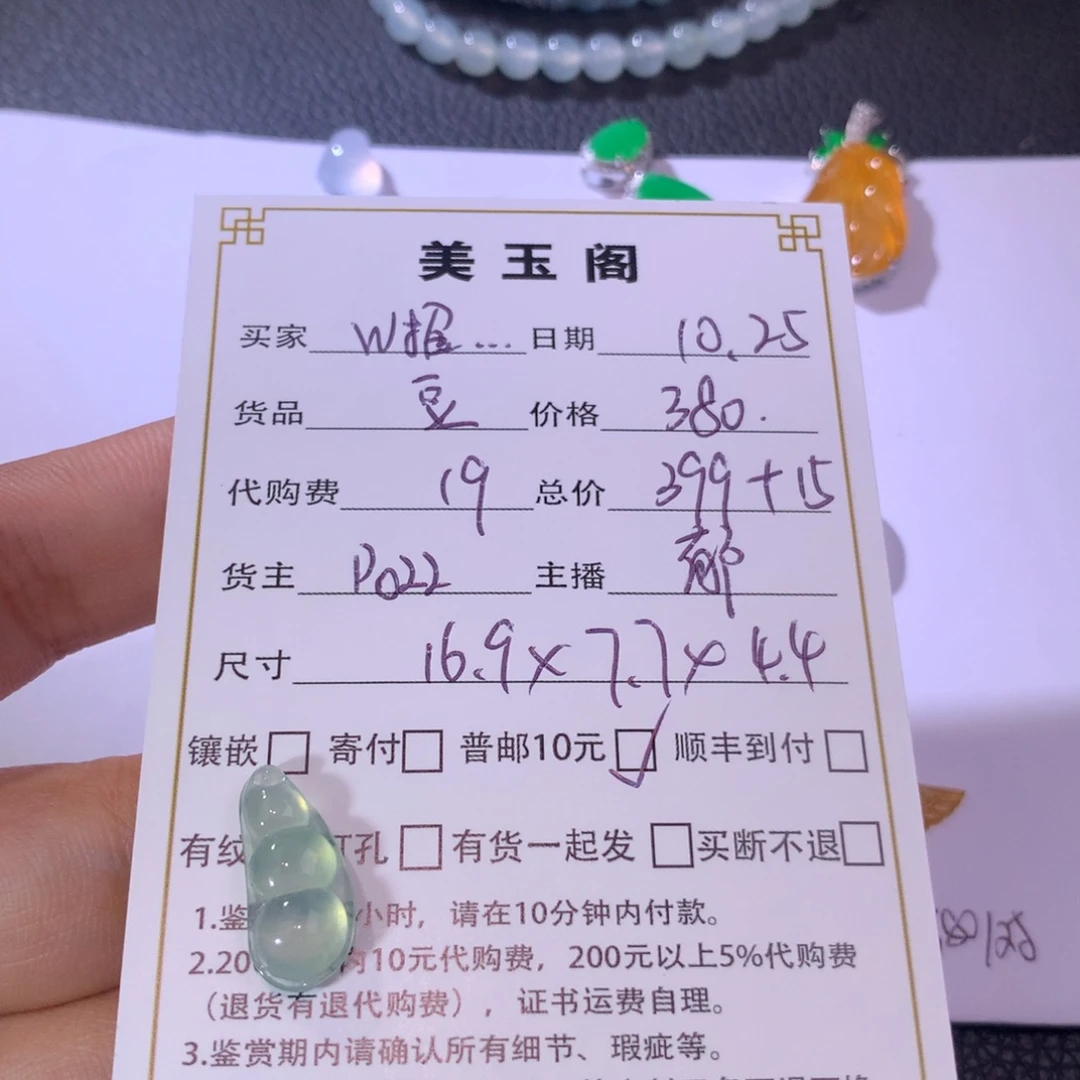 美玉阁
买家 W握... 日期 10.25
货品 豆 价格 380.
代购费 19 总价 399+15
货主 P022 主播 郁
尺寸 16.9×7.7×4.4
镶嵌□ 寄付□ 普邮10元☑ 顺丰到付□
有纹 打孔□ 有货一起发□ 买断不退□
1.鉴 小时，请在10分钟内付款。
2.20 内10元代购费，200元以上5%代购费
（退货有退代购费），证书运费自理。
3.鉴赏期内请确认所有细节、瑕疵等。